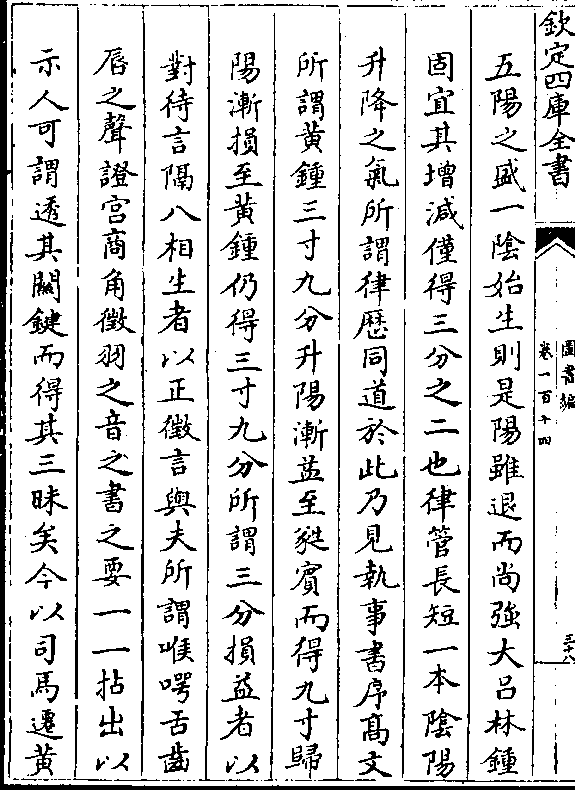 欽定四庫全書
圖書編
卷一百十四
三十八
五陽之盛一陰始生則是陽雖退而尚強大呂林鍾
固宜其增減僅得三分之二也律管長短一本陰陽
升降之氣所謂律歴同道於此乃見執事書序髙文
所謂黄鍾三寸九分升陽漸益至蕤賓而得九寸歸
陽漸損至黄鍾仍得三寸九分所謂三分損益者以
對待言隔八相生者以正徵言與夫所謂喉咢舌齒
唇之聲證宫商角徵羽之音之書之要一一拈出以
示人可謂透其關鍵而得其三昧矣今以司馬遷黄